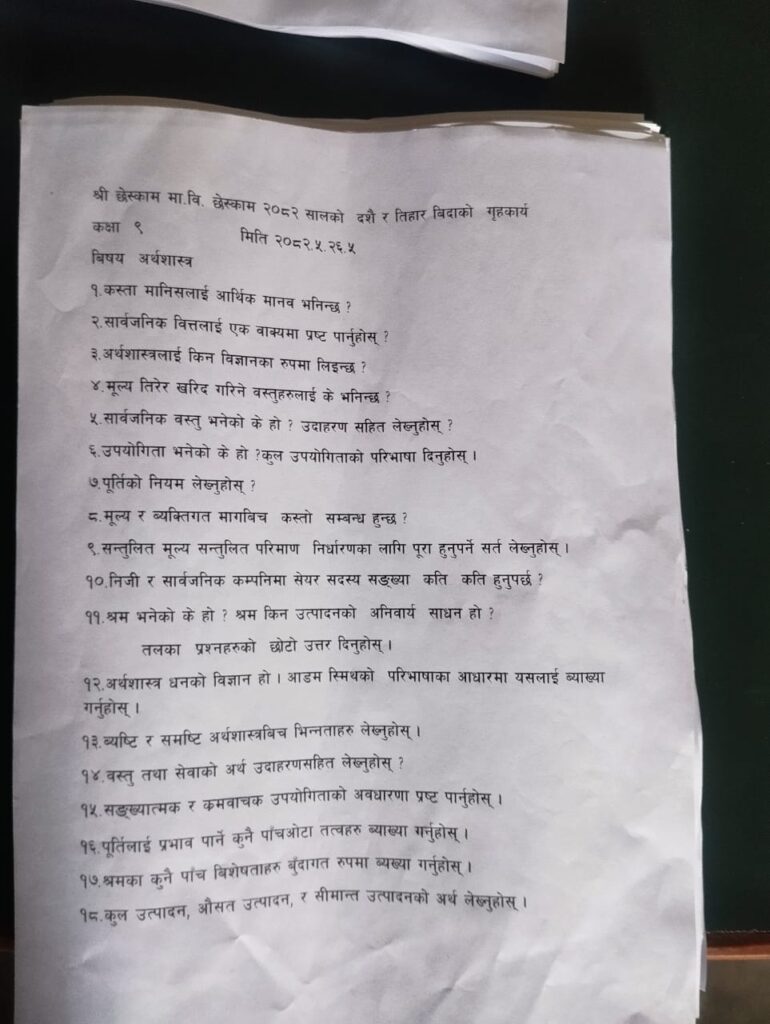 श्री छेस्काम मा.वि. छेस्काम २०८२ सालको दशै र तिहार बिदाको गृहकार्य
कक्षा ९ मिति २०८२.५.२६.५
बिषय अर्थशास्त्र
१.कस्ता मानिसलाई आर्थिक मानव भनिन्छ ?
२.सार्वजनिक वित्तलाई एक वाक्यमा प्रष्ट पार्नुहोस् ?
३.अर्थशास्त्रलाई किन विज्ञानका रुपमा लिइन्छ ?
४.मूल्य तिरेर खरिद गरिने वस्तुहरुलाई के भनिन्छ ?
५.सार्वजनिक वस्तु भनेको के हो ? उदाहरण सहित लेख्नुहोस् ?
६.उपयोगिता भनेको के हो ?कुल उपयोगिताको परिभाषा दिनुहोस् ।
७.पूर्तिको नियम लेख्नुहोस् ?
८.मूल्य र ब्यक्तिगत मागबिच कस्तो सम्बन्ध हुन्छ ?
९.सन्तुलित मूल्य सन्तुलित परिमाण निर्धारणका लागि पूरा हुनुपर्ने सर्त लेख्नुहोस् ।
१०.निजी र सार्वजनिक कम्पनिमा सेयर सदस्य सङ्ख्या कति कति हुनुपर्छ ?
११.श्रम भनेको के हो ? श्रम किन उत्पादनको अनिवार्य साधन हो ?
तलका प्रश्नहरुको छोटो उत्तर दिनुहोस् ।
१२.अर्थशास्त्र धनको विज्ञान हो । आडम स्मिथको परिभाषाका आधारमा यसलाई ब्याख्या
गर्नुहोस् ।
१३.ब्यष्टि र समष्टि अर्थशास्त्रबिच भिन्नताहरु लेख्नुहोस् ।
१४.वस्तु तथा सेवाको अर्थ उदाहरणसहित लेख्नुहोस् ?
१५.सङ्ख्यात्मक र कमवाचक उपयोगिताको अवधारणा प्रष्ट पार्नुहोस् ।
१६.पूर्तिलाई प्रभाव पार्ने कुनै पाँचओटा तत्वहरु ब्याख्या गर्नुहोस् ।
१७.श्रमका कुनै पाँच बिशेषताहरु बुँदागत रुपमा ब्यख्या गर्नुहोस् ।
१८.कुल उत्पादन, औसत उत्पादन, र सीमान्त उत्पादनको अर्थ लेख्नुहोस् ।